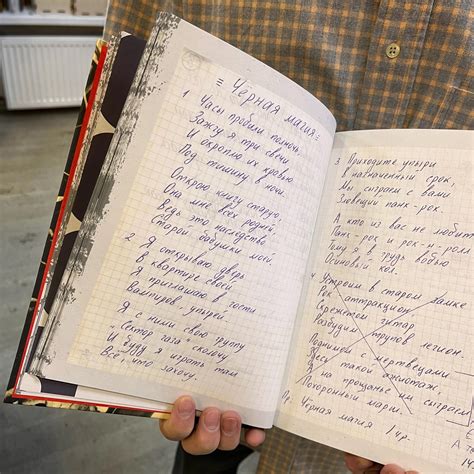 ≡ Чёрная магия ≡
1 Часы пробили полночь,
Зажгу я три свечи
И окроплю их кровью
Под тишину в ночи.
Открою книгу старую,
Она мне всех родней,
Ведь это наследство
Старой бабушки моей.
2 Я открываю дверь
В квартире своей,
Я приглашаю в гости
Вампиров, упырей.
Я с ними свою группу
"Сектор газа" сколочу
И буду я играть там
Всё, что захочу.
3 Приходите упыри
В назначенный срок,
Мы сыграем с вами
Зловещий панк-рок.
А кто из вас не любит
Панк-рок и рок-н-ролл
Тому я в грудь вобью
Осиновый кол.
4 Устроим в старом замке
Рок аттракцион,
Скрежетом гитар
Разбудим трупов легион
Поднимем с мертвецами
такой ажиотаж,
Я на прощанье им сыграем
Похоронный марш.
Пр. Чёрная магия 1 чр.